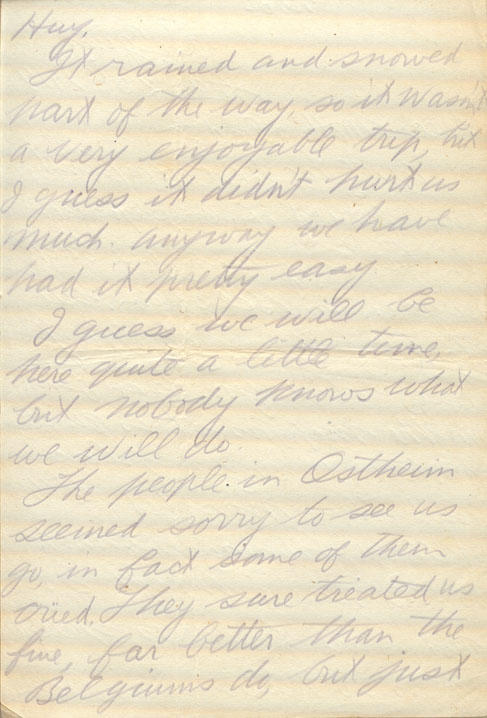 Huy.
It rained and snowed
part of the way, so it wasn't
a very enjoyable trip, but
I guess it didn't hurt us
much. anyway we have
had it pretty easy
I guess we will be
here quite a little time,
but nobody knows what
we will do.
The people in Ostheim
seemed sorry to see us
go, in fact some of them
cried. They sure treated us
fine, far better than the
Belgiums do, but just